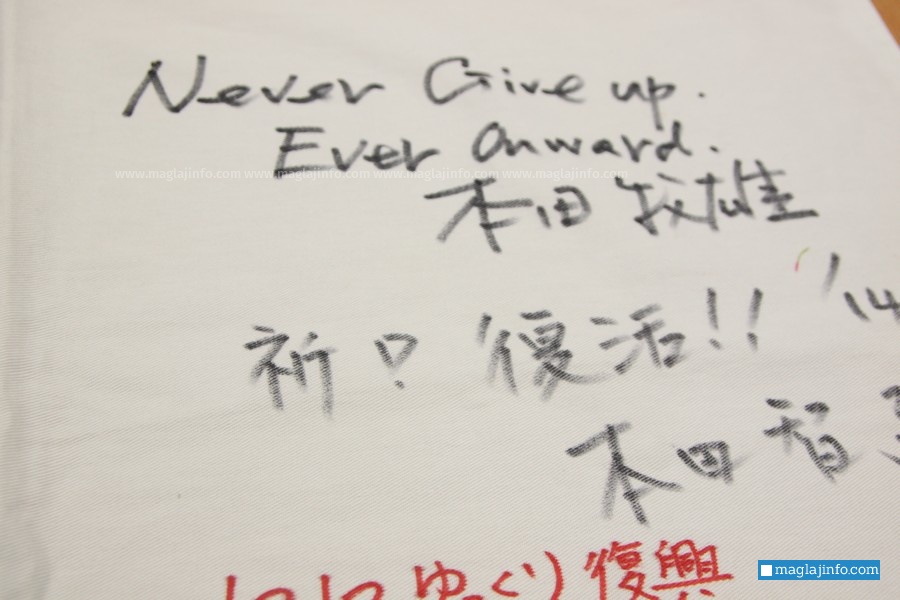 Never Give up.
Ever Onward.
www.maglajinfo.com www.maglajinfo.com www.maglajinfo.com www.maglajinfo.com
本田
'14
祈! 復活!!
本田
ゆっくり 復興
maglajinfo.com